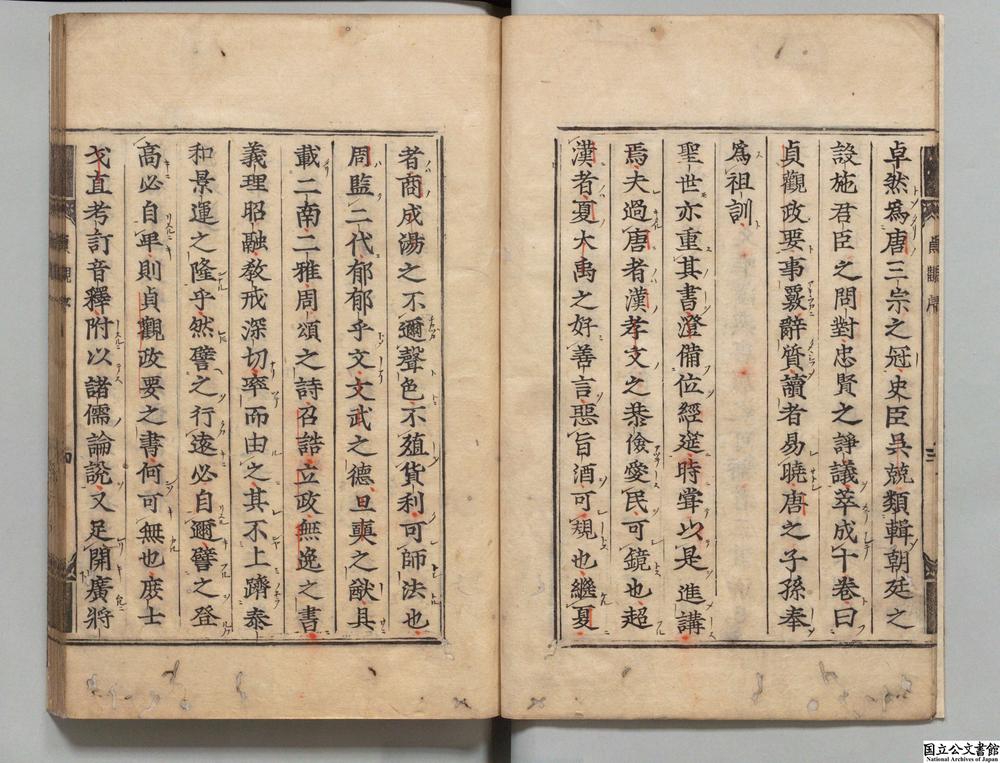 卓然為唐三宗之冠史臣吳兢類輯朝廷之
設施君臣之問對忠賢之諍議萃成十卷曰
貞觀政要事覈辭質讀者易曉唐之子孫奉
為祖訓
聖世亦重其書澄備位經筵時嘗以是進講
焉夫過唐者漢孝文之恭儉愛民可鏡也超
漢者夏大禹之好善言惡旨酒可規也繼夏
者商成湯之不邇聲色不殖貨利可師法也
周監二代郁郁乎文文武之德旦奭之猷具
載二南二雅周頌之詩召誥立政無逸之書
義理昭融教戒深切率而由之其不上躋泰
和景運之隆乎然譬之行遠必自邇譬之登
高必自卑則貞觀政要之書何可無也庶士
戈直考訂音釋附以諸儒論說又足開廣將
国立公文書館
National Archives of Japan